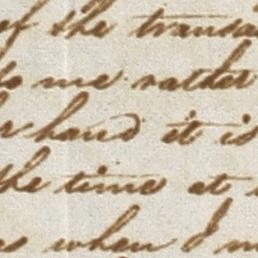 of the transa
to me rather
r hand it is
the time at
when I m